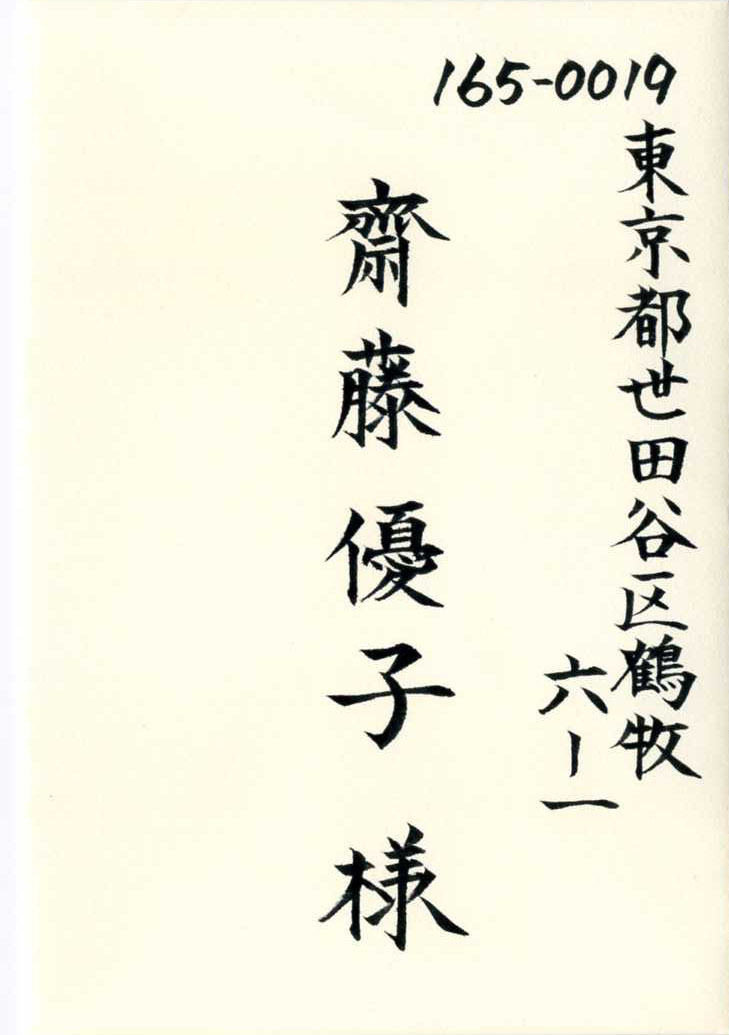 165-0019
東京都世田谷区鶴牧
六ー一
齋藤優子様